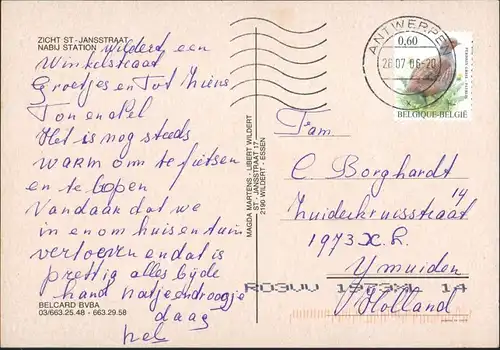 ZICHT ST-JANSSTRAAT
NABIJ STATION wilderd een
Winkelstraat
Groetjes en Tot Ziens
Ton en Nel
Het is nog steeds
WARM om te fietsen
en te lopen
Vandaar dat we
in en om huis en tuin
vertoeven en dat is
prettig alles bij de
hand natje en droogje
daag
Nel
BELCARD BVBA
03/663.25.48 - 663.29.58
MAGDA MARTENS - LIBERT WILDERT
ST - JANSSTRAAT 17
2190 WILDERT - ESSEN
ANTWERPEN
26.07.06-20
0,60
BELGIQUE-BELGIË
Fam.
C Borghardt
Zuiderkruisstraat 14
1973 X.L.
Ymuiden
Holland
R03VV 1973XL 14